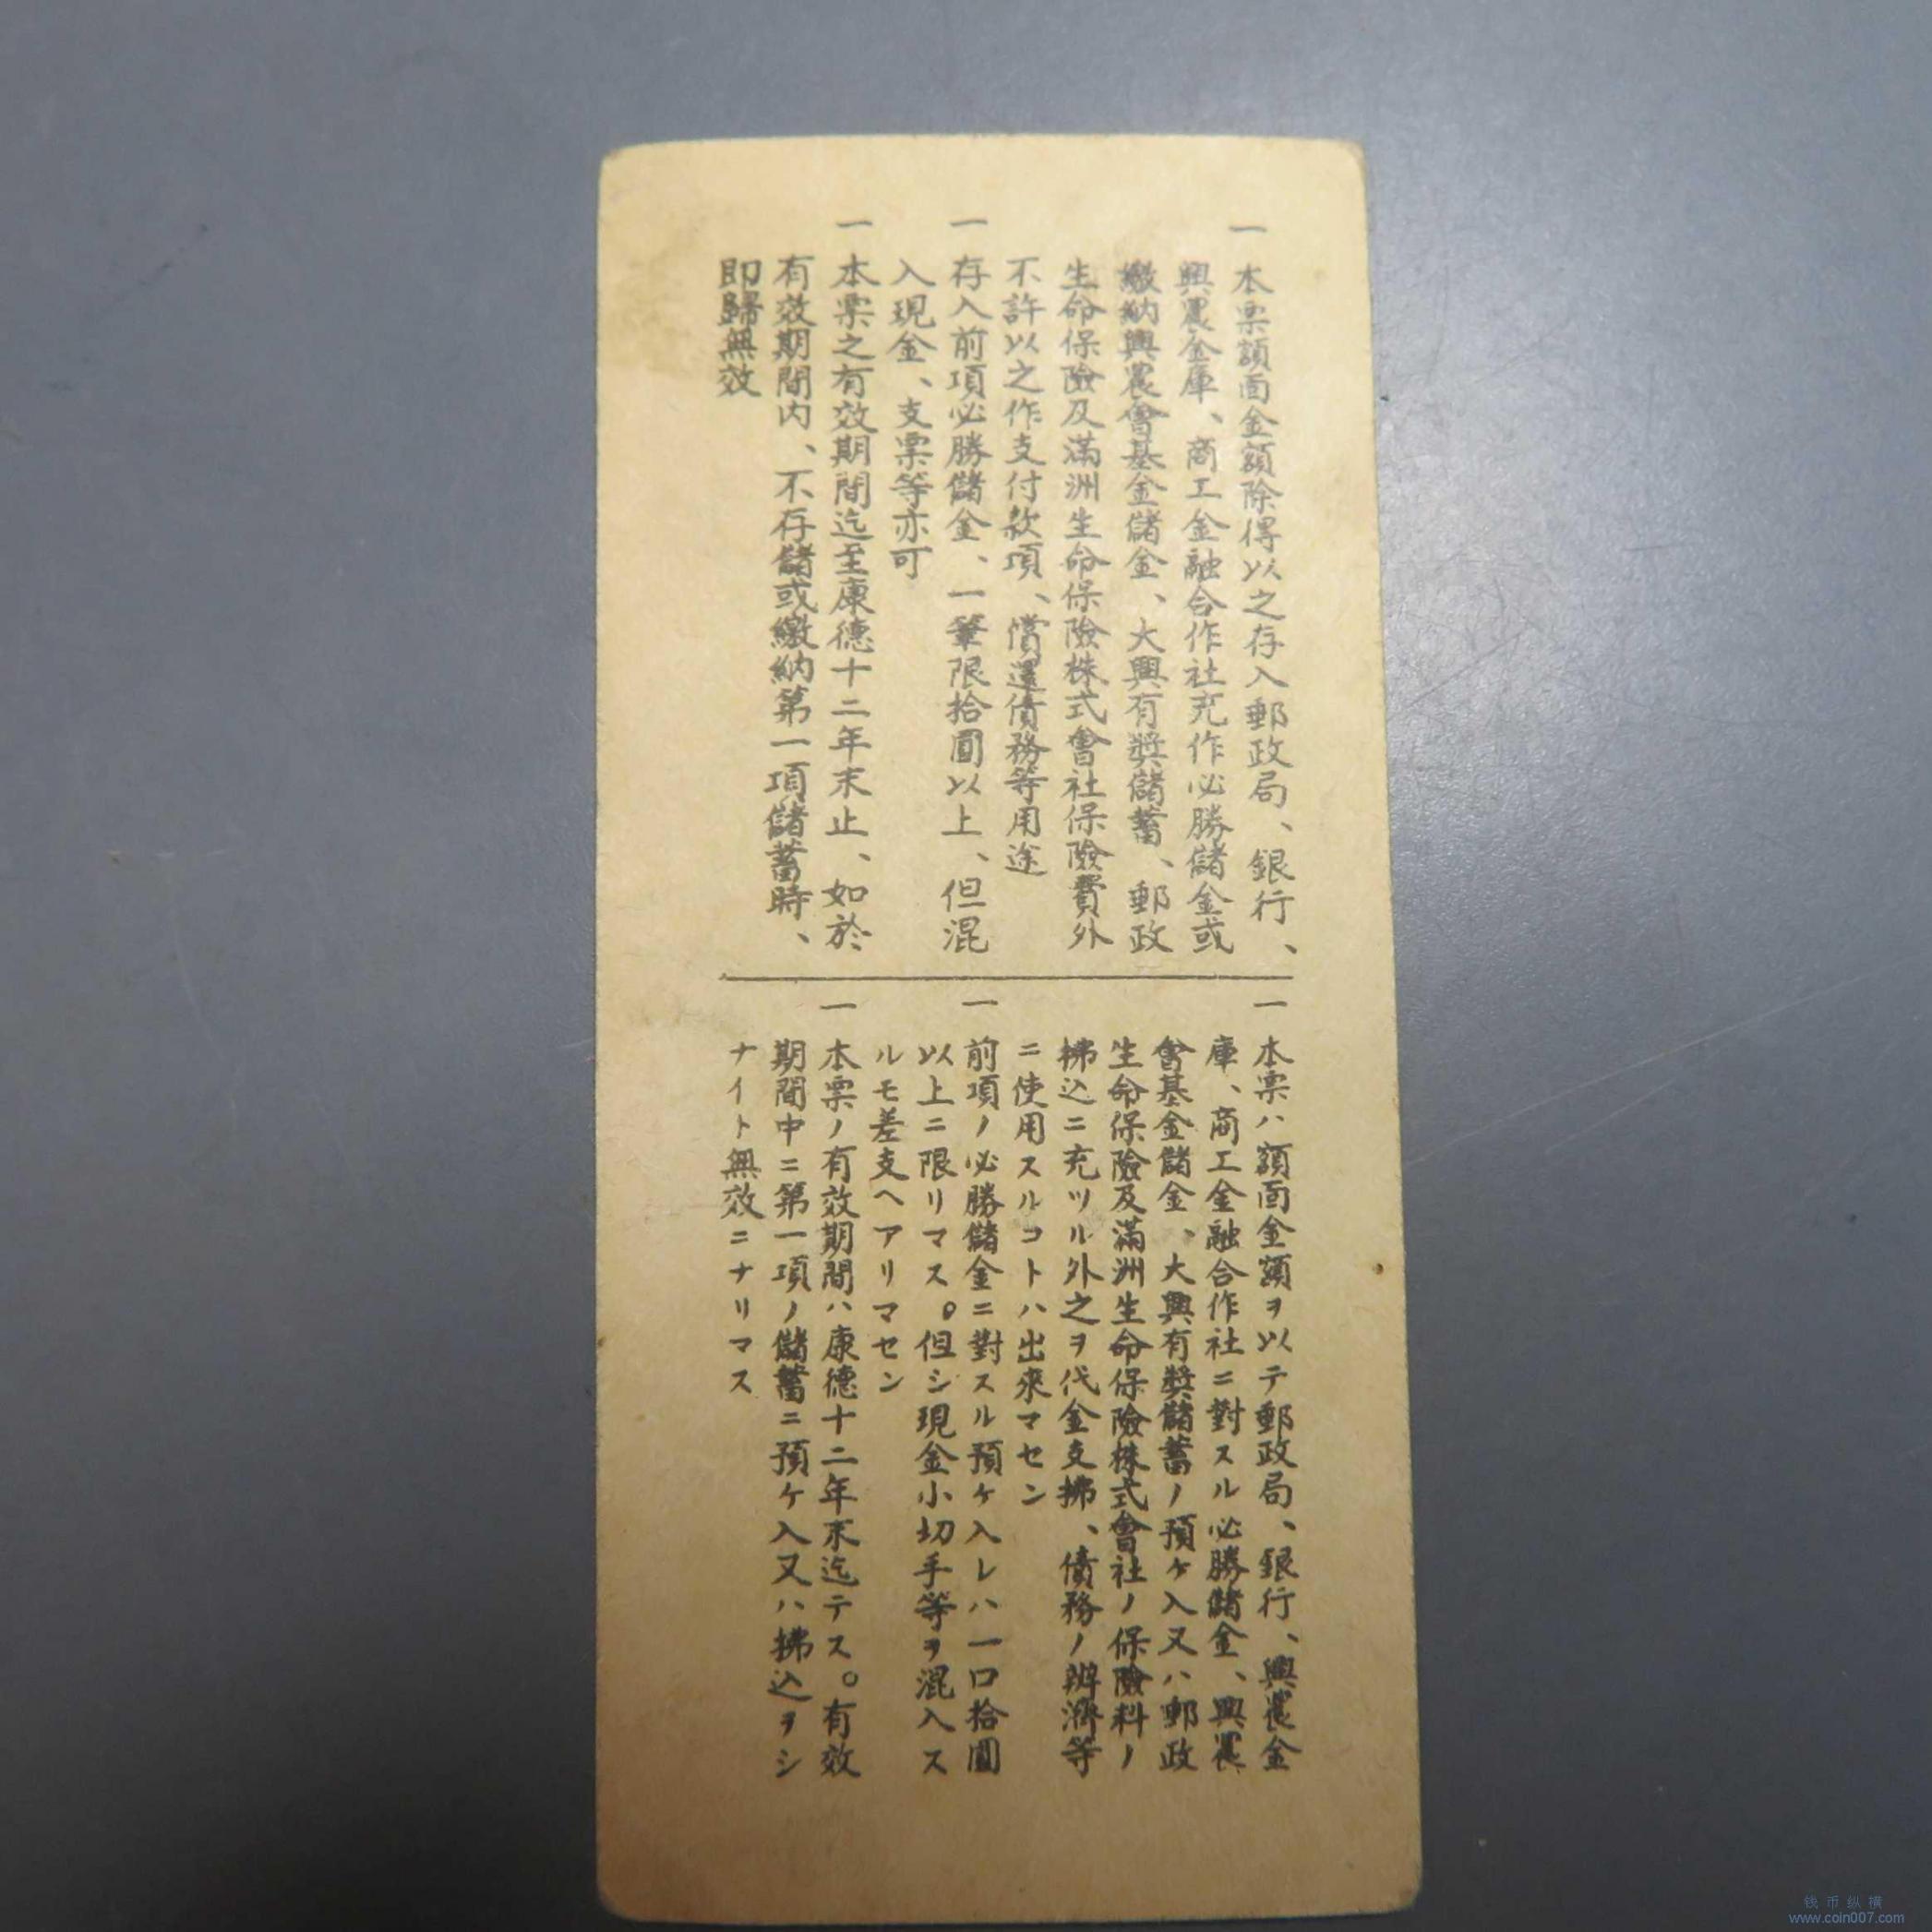 一 本票額面金額除得以之存入郵政局、銀行、
興農金庫、商工金融合作社充作必勝儲金或
繳納興農會基金儲金、大興有獎儲蓄、郵政
生命保險及滿洲生命保險株式會社保險費外
不許以之作支付款項、償還債務等用途
一 存入前項必勝儲金、一筆限拾圓以上、但混
入現金、支票等亦可
一 本票之有效期間迄至康德十二年末止、如於
有效期間内、不存儲或繳納第一項儲蓄時、
即歸無效
一 本票ハ額面金額ヲ以テ郵政局、銀行、興農金
庫、商工金融合作社ニ對スル必勝儲金、興農
會基金儲金、大興有獎儲蓄ノ預ケ入又ハ郵政
生命保險及滿洲生命保險株式會社ノ保險料ノ
拂込ニ充ツル外之ヲ代金支拂、債務ノ辨濟等
ニ使用スルコトハ出來マセン
一 前項ノ必勝儲金ニ對スル預ケ入レハ一口拾圓
以上ニ限リマス。但シ現金小切手等ヲ混入ス
ルモ差支ヘアリマセン
一 本票ノ有效期間ハ康德十二年末迄テス。有效
期間中ニ第一項ノ儲蓄ニ預ケ入又ハ拂込ヲシ
ナイト無效ニナリマス
钱币纵横
www.coin007.com